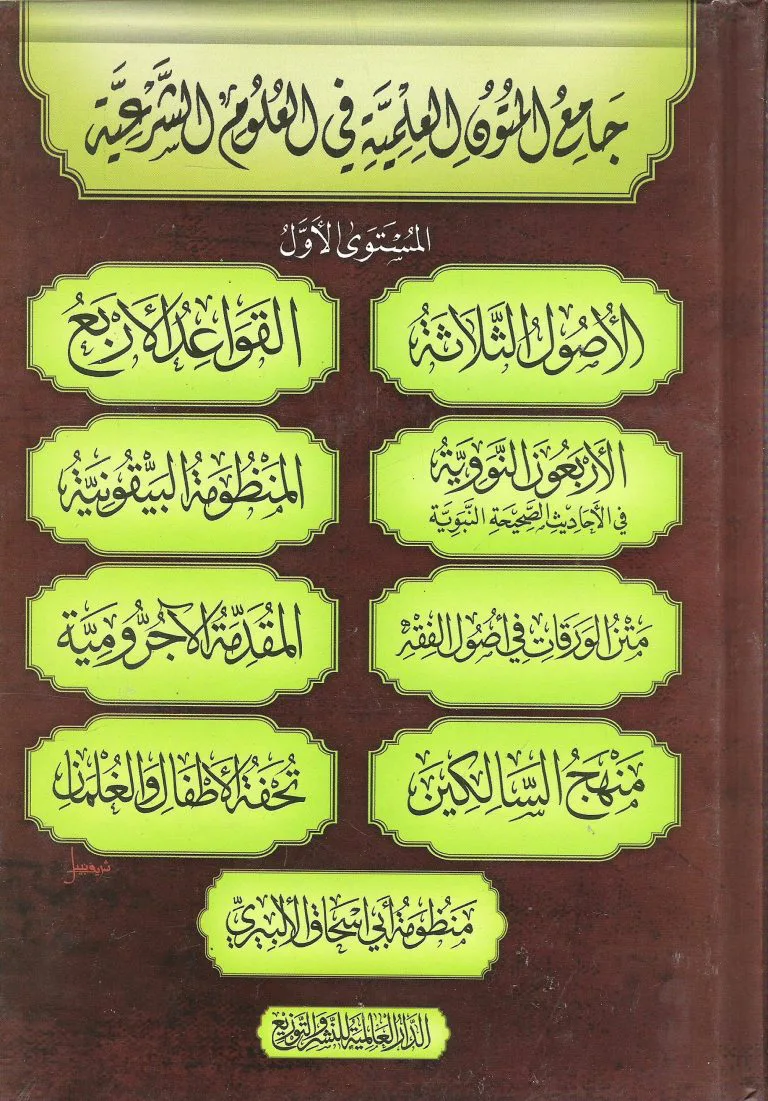 جَامِعُ المُتُونِ العِلْمِيَّةِ فِي العُلُومِ الشَّرْعِيَّةِ
المُسْتَوَى الأَوَّلُ
الأُصُولُ الثَّلَاثَةُ
القَوَاعِدُ الأَرْبَعُ
الأَرْبَعُونَ النَّوَوِيَّةُ
فِي الأَحَادِيثِ الصَّحِيحَةِ النَّبَوِيَّةِ
المَنْظُومَةُ البَيْقُونِيَّةُ
مَتْنُ الوَرَقَاتِ فِي أُصُولِ الفِقْهِ
المُقَدِّمَةُ الآجُرُّومِيَّة
مَنْهَجُ السَّالِكِينَ
تُحْفَةُ الأَطْفَالِ وَالغُلْمَانِ
مَنْظُومَةُ أَبِي إِسْحَاقَ الأَلْبِيرِيِّ
الدَّارُ العَالَمِيَّةُ لِلنَّشْرِ وَالتَّوْزِيعِ